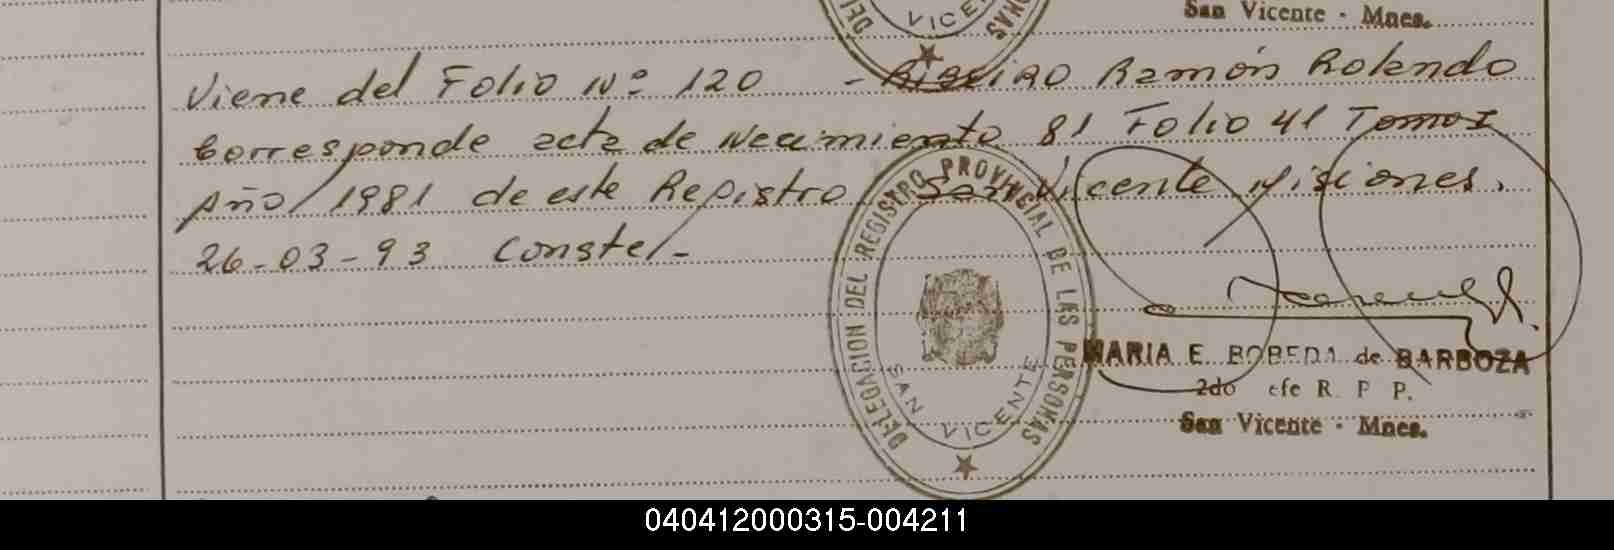 San Vicente - Mnes.
VICE
Viene del Folio Nº 120 - Ribeiro Ramón Rolando
Corresponde acta de Nacimiento 81 Folio 41 Tomo I
Año/1981 de este Registro San Vicente Misiones.
26-03-93 Conste/-
DELEGACION DEL REGISTRO PROVINCIAL DE LAS PERSONAS
SAN VICENTE
MARIA E. BOBEDA de BARBOZA
2do efe R. P P.
San Vicente - Mnes.
040412000315-004211